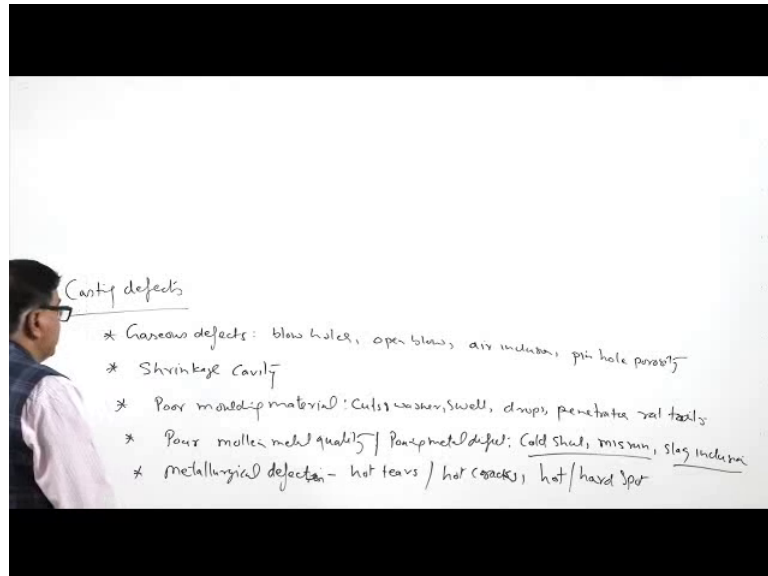 Casting defects
* Gaseous defects: blow holes, open blows, air inclusion, pin hole porosity
* Shrinkage Cavity
* Poor moulding material: Cuts & washes, swell, drops, penetration rat tails
* Pour molten metal quality / Pouring metal defect: Cold Shut, misrun, slag inclusion
* Metallurgical defects - hot tears / hot cracks, hot / hard Spot